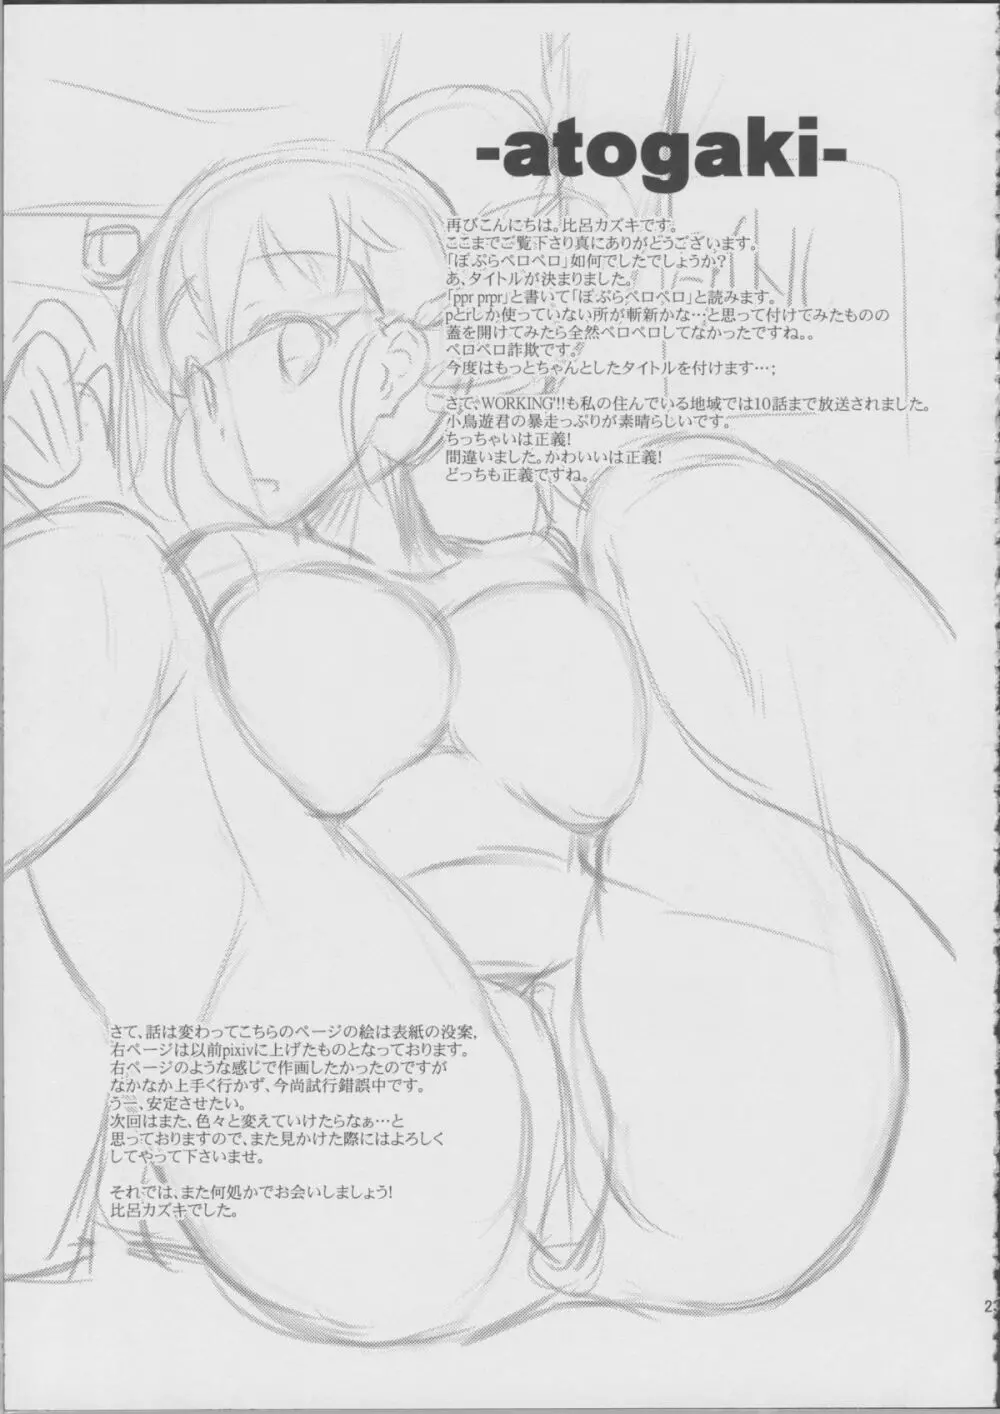 -atogaki-
再びこんにちは。比呂カズキです。
ここまでご覧下さり真にありがとうございます。
「ぽぷらペロペロ」如何でしたでしょうか?
あ、タイトルが決まりました。
「ppr prpr」と書いて「ぽぷらペロペロ」と読みます。
pとrしか使っていない所が斬新かな…と思って付けてみたものの
蓋を開けてみたら全然ペロペロしてなかったですね。。
ペロペロ詐欺です。
今度はもっとちゃんとしたタイトルを付けます…;
さて、WORKING'!!も私の住んでいる地域では10話まで放送されました。
小鳥遊君の暴走っぷりが素晴らしいです。
ちっちゃいは正義!
間違いました。かわいいは正義!
どっちも正義ですね。
さて、話は変わってこちらのページの絵は表紙の没案,
右ページは以前pixivに上げたものとなっております。
右ページのような感じで作画したかったのですが
なかなか上手く行かず、今尚試行錯誤中です。
うー、安定させたい。
次回はまた、色々と変えていけたらなぁ…と
思っておりますので、また見かけた際にはよろしく
してやって下さいませ。
それでは、また何処かでお会いしましょう!
比呂カズキでした。